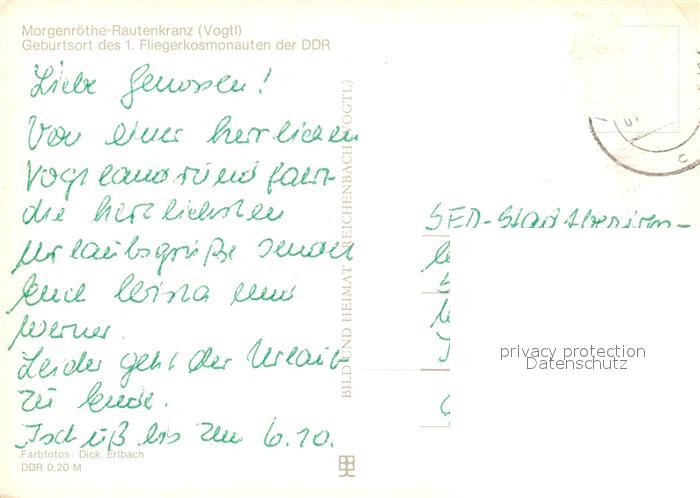 Morgenröthe-Rautenkranz (Vogtl)
Geburtsort des 1. Fliegerkosmonauten der DDR
Liebe Genossen!
Von einer herrlichen
Vogtlandrundfahrt
die herzlichsten
Urlaubsgrüße senden
Euch und
Werner.
Leider geht der Urlaub
zu Ende.
Tschüß bis zum 6.10.
Farbfotos: Dick, Erlbach
DDR 0,20 M
BILD UND HEIMAT REICHENBACH (VOGTL)
privacy protection
Datenschutz